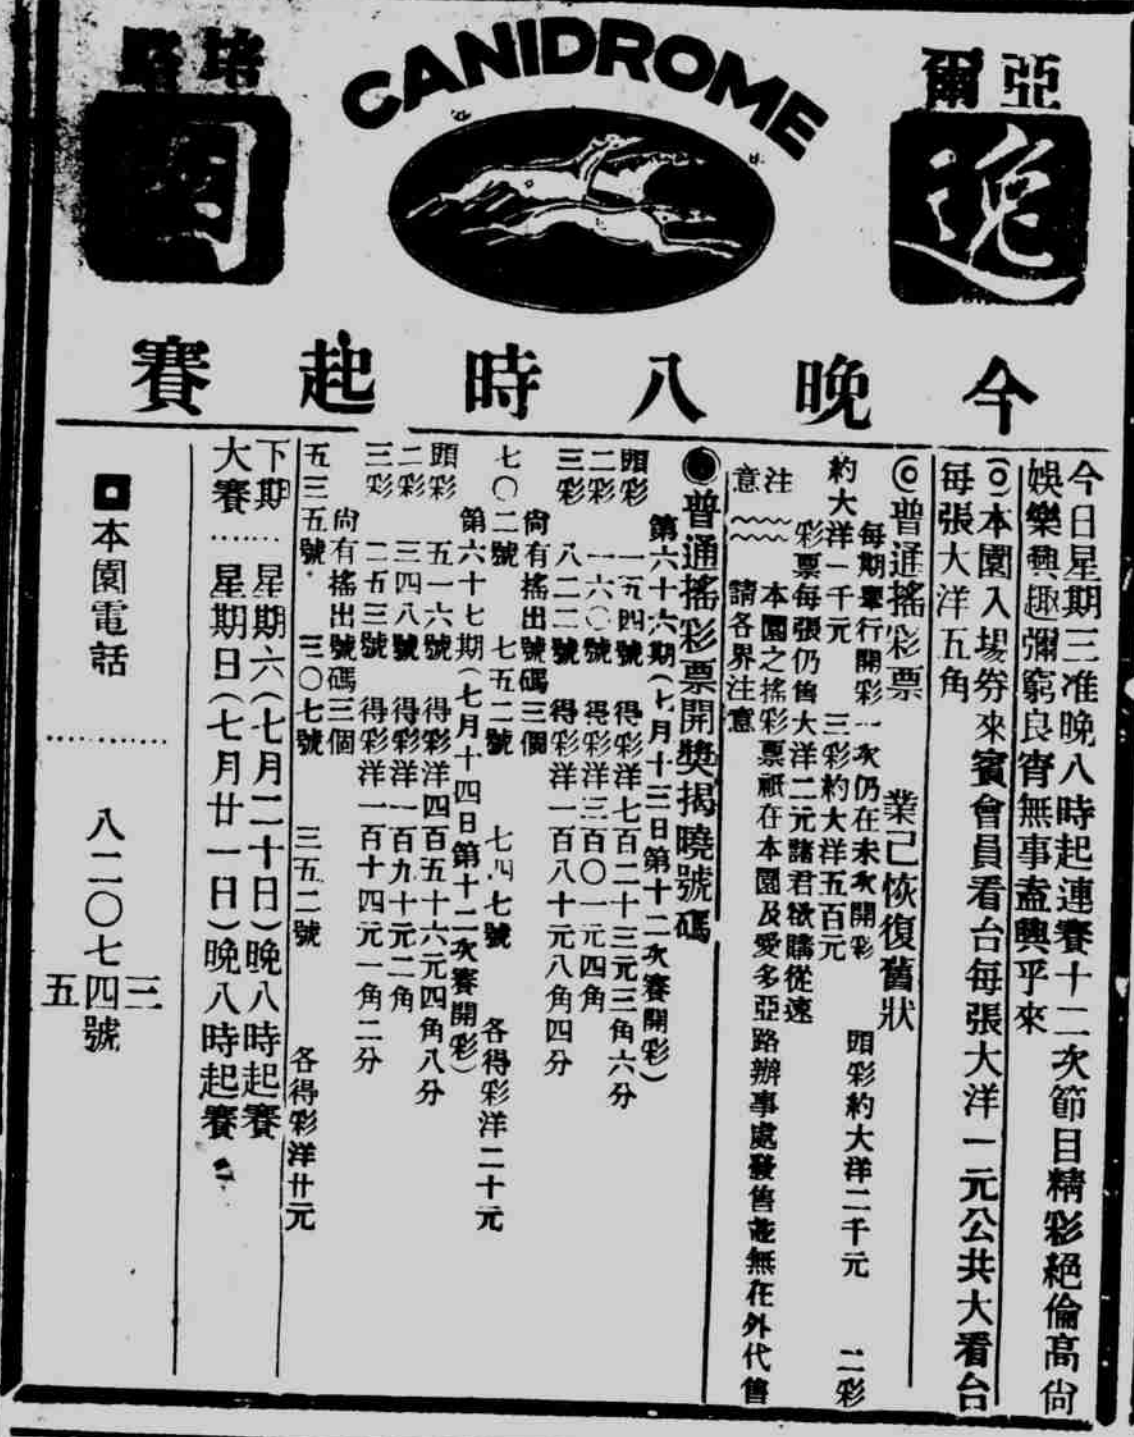 CANIDROME
亞爾
培路
逸
園
今晚八時起賽
今日星期三准晚八時起連賽十二次節目精彩絕倫高尙
娛樂興趣彌窮良宵無事盍興乎來
◎本園入場券來賓會員看台每張大洋一元公共大看台
每張大洋五角
◎普通搖彩票 業已恢復舊狀
每期舉行開彩一次仍在末次開彩 頭彩約大洋二千元 二彩
約大洋一千元 三彩約大洋五百元
彩票每張仍售大洋二元諸君欲購從速
注意
本園之搖彩票祇在本園及愛多亞路辦事處發售並無在外代售
請各界注意
◎普通搖彩票開獎揭曉號碼
第六十六期(七月十三日第十二次賽開彩)
頭彩 一五四號 得彩洋七百二十三元三角六分
二彩 一六〇號 得彩洋三百〇一元四角
三彩 八二二號 得彩洋一百八十元八角四分
尙有搖出號碼三個
七〇二號 七五二號 七四七號 各得彩洋二十元
第六十七期(七月十四日第十二次賽開彩)
頭彩 五一六號 得彩洋四百五十六元四角八分
二彩 三四八號 得彩洋一百九十元二角
三彩 二五三號 得彩洋一百十四元一角二分
尙有搖出號碼三個
五三五號 三〇七號 三五二號 各得彩洋廿元
下期 星期六(七月二十日)晚八時起賽
大賽……星期日(七月廿一日)晚八時起賽
本園電話……八二〇七 三 四 五 號